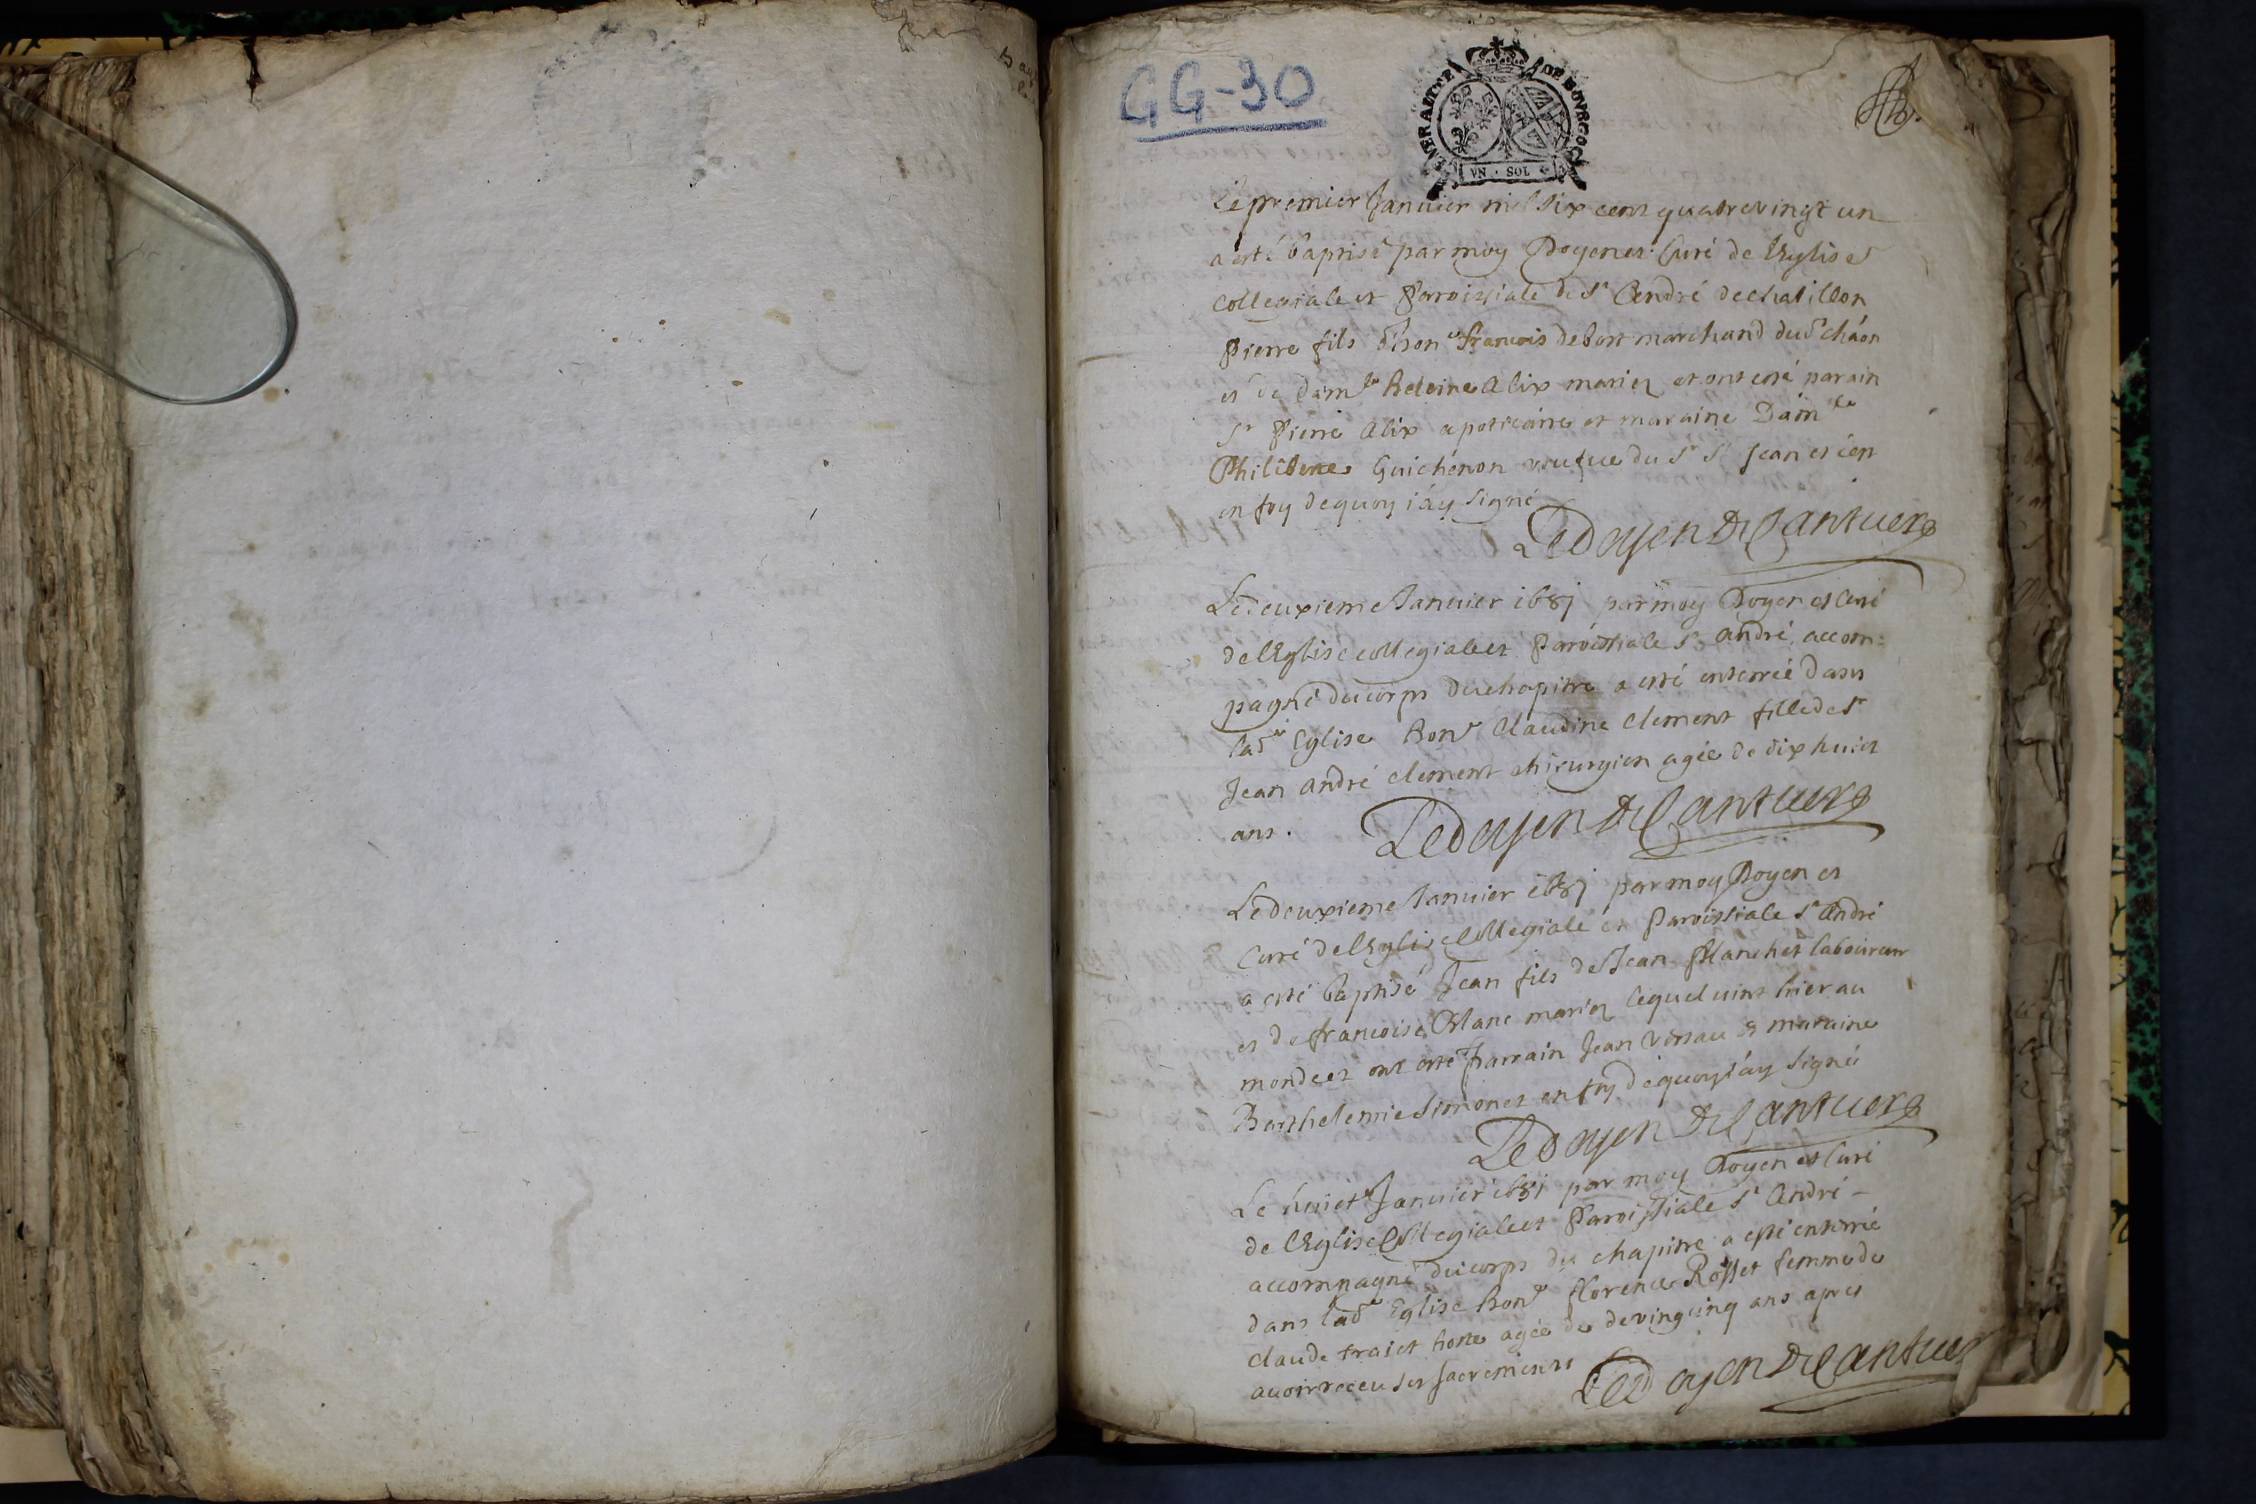 GG-30
GENERALITE DE BOVRGOG
VN · SOL
Le premier Januier mil six cent quatrevingt un
a esté baptisé par moy Doyen et Curé de l'Eglise
collegiale et Parroissiale de St André de chatillon
Pierre fils d'hon.e francois debort marchand dud chaon
et de Dam.lle Heleine Alix mariez et ont esté parain
Sr Pierre Alix apoticaire et maraine Dam.lle
Philiberte Guichenon veufue du Sr St Jean et
en foy de quoy i'ay signé
Ledoyen De Cantuerg
Le deuxieme Januier 1681 par moy Doyen et Curé
de l'Eglise collegiale et Paroissiale St André accom:
pagné du corps du chapitre a esté enterrée dans
lad.e Eglise hon.e Claudine Clement fille de Sr
Jean André Clement chirurgien agée de dix huict
ans.
Ledoyen De Cantuerg
Le deuxieme Januier 1681 par moy Doyen et
Curé de l'Eglise collegiale et Paroissiale St André
a esté baptisé Jean fils de Jean Planchet laboureur
et de francoise Blanc mariez lequel vint hier au
monde et ont esté parrain Jean et maraine
Barthelemie Simonet en foy de quoy i'ay signé
Ledoyen De Cantuerg
Le huict.e Januier 1681 par moy Doyen et Curé
de l'Eglise Collegiale et Paroissiale St André -
accompagné du corps du chapitre a esté enterrée
dans lad.e Eglise hon.e florence Rosset femme de
claude traict hoste agée de de vingcinq ans apres
auoir receu ses sacrements
Ledoyen De Cantuer